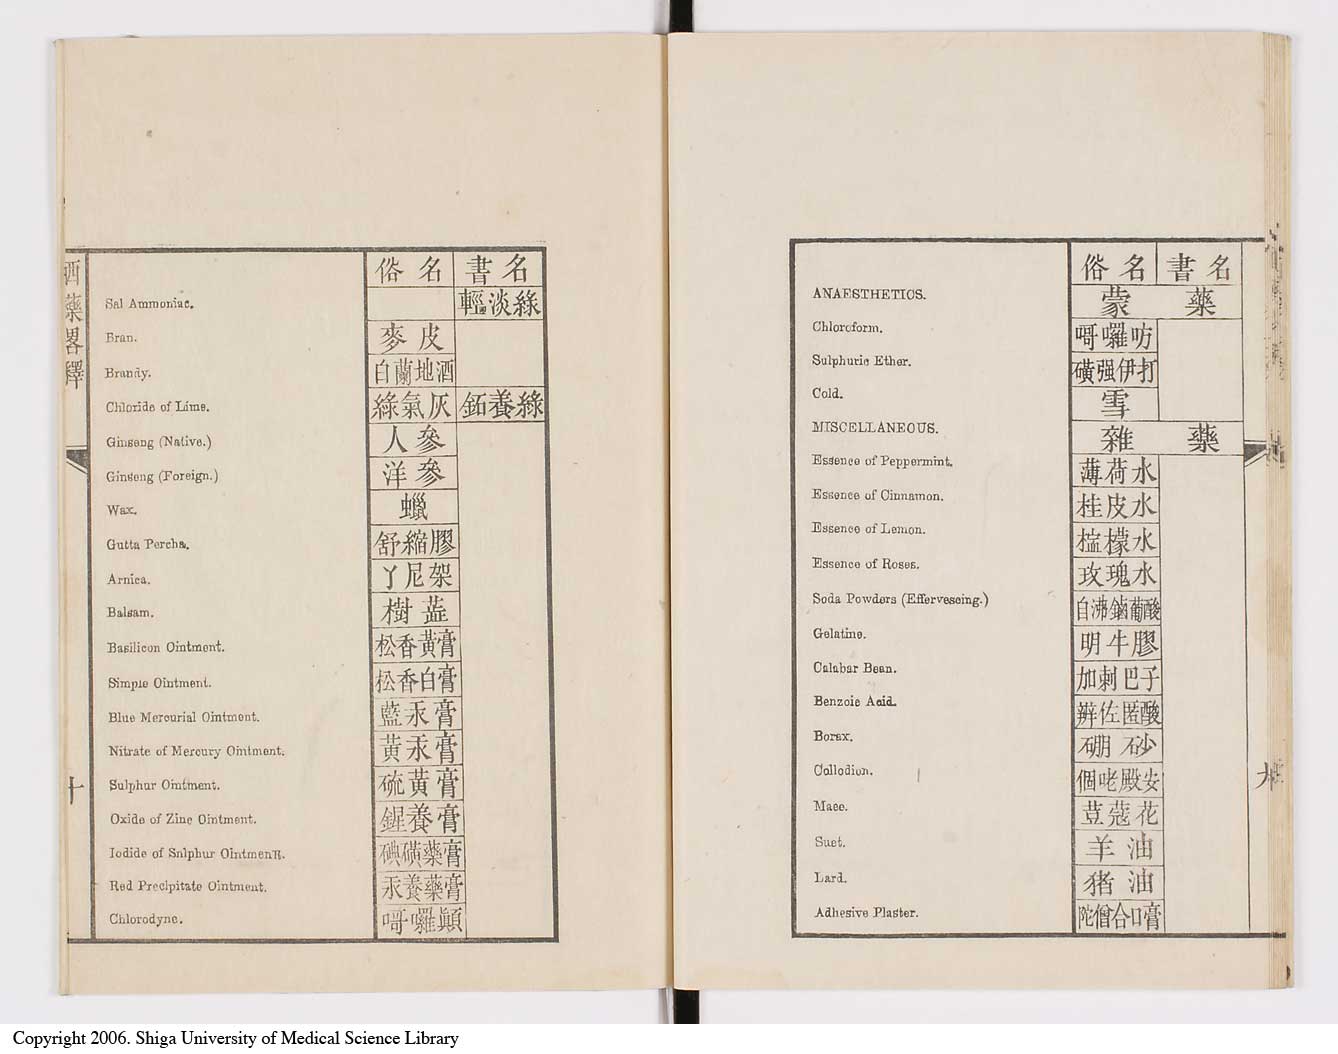 俗名 書名
ANAESTHETICS. 蒙藥
Chloroform. 哥囉吩
Sulphuric Ether. 磺强伊打
Cold. 雪
MISCELLANEOUS. 雜藥
Essence of Peppermint. 薄荷水
Essence of Cinnamon. 桂皮水
Essence of Lemon. 檸檬水
Essence of Roses. 玫瑰水
Soda Powders (Effervescing.) 自沸鏀葡酸
Gelatine. 明牛膠
Calabar Bean. 加刺巴子
Benzoic Acid. 辨佐匿酸
Borax. 硼砂
Collodion. 個咾殿安
Mace. 荳蔻花
Suet. 羊油
Lard. 猪油
Adhesive Plaster. 陀僧合口膏
九
俗名 書名
Sal Ammoniac. 輕淡綠
Bran. 麥皮
Brandy. 白蘭地酒
Chloride of Lime. 綠氣灰 鉐養綠
Ginseng (Native.) 人參
Ginseng (Foreign.) 洋參
Wax. 蠟
Gutta Percha. 舒縮膠
Arnica. 丫尼架
Balsam. 樹𧂐
Basilicon Ointment. 松香黃膏
Simple Ointment. 松香白膏
Blue Mercurial Ointment. 藍汞膏
Nitrate of Mercury Ointment. 黃汞膏
Sulphur Ointment. 硫黃膏
Oxide of Zinc Ointment. 鍟養膏
Iodide of Snlphur Ointmenn. 碘磺藥膏
Red Precipitate Ointment. 汞養藥膏
Chlorodyne. 哥囉顚
西藥畧釋
十
Copyright 2006. Shiga University of Medical Science Library